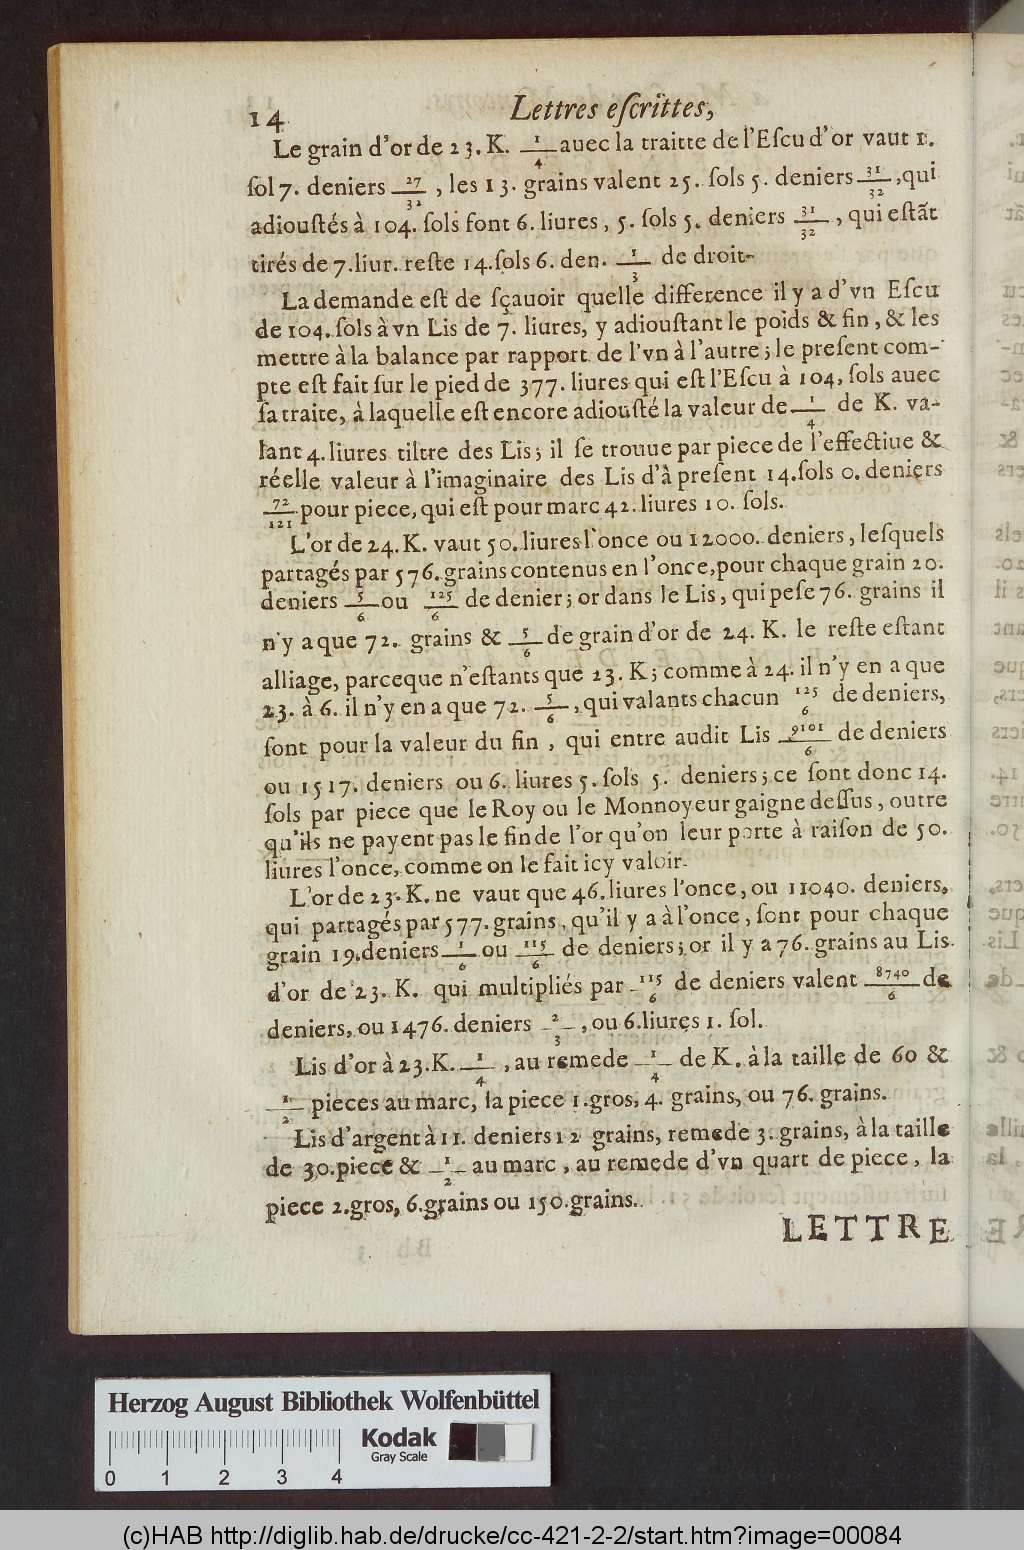 14 Lettres eſcrittes,
Le grain d'or de 23. K. 1/4 auec la traitte de l'Eſcu d'or vaut 1.
ſol 7. deniers 27/32, les 13. grains valent 25. ſols 5. deniers 31/32, qui
adiouſtés à 104. ſols font 6. liures, 5. ſols 5. deniers 31/32, qui eſtãt
tirés de 7. liur. reſte 14. ſols 6. den. 1/3 de droit-
La demande eſt de ſçauoir quelle difference il y a d'vn Eſcu
de 104. ſols à vn Lis de 7. liures, y adiouſtant le poids & fin, & les
mettre à la balance par rapport de l'vn à l'autre; le preſent com-
pte eſt fait ſur le pied de 377. liures qui eſt l'Eſcu à 104, ſols auec
ſa traite, à laquelle eſt encore adiouſté la valeur de 1/4 de K. va-
lant 4. liures tiltre des Lis; il ſe trouue par piece de l'effectiue &
réelle valeur à l'imaginaire des Lis d'à preſent 14. ſols 0. deniers
72/121 pour piece, qui eſt pour marc 42. liures 10. ſols.
L'or de 24. K. vaut 50. liures l'once ou 12000. deniers, leſquels
partagés par 576. grains contenus en l'once, pour chaque grain 20.
deniers 5/6 ou 125/6 de denier; or dans le Lis, qui peſe 76. grains il
n'y a que 72. grains & 5/6 de grain d'or de 24. K. le reſte eſtant
alliage, parceque n'eſtants que 23. K; comme à 24. il n'y en a que
23. à 6. il n'y en a que 72. 5/6, qui valants chacun 125/6 de deniers,
ſont pour la valeur du fin, qui entre audit Lis 9101/6 de deniers
ou 1517. deniers ou 6. liures 5. ſols 5. deniers; ce ſont donc 14.
ſols par piece que le Roy ou le Monnoyeur gaigne deſſus, outre
qu'ils ne payent pas le fin de l'or qu'on leur porte à raiſon de 50.
liures l'once, comme on le fait icy valoir.
L'or de 23. K. ne vaut que 46. liures l'once, ou 11040. deniers,
qui partagés par 577. grains, qu'il y a à l'once, ſont pour chaque
grain 19. deniers 1/6 ou 115/6 de deniers; or il y a 76. grains au Lis
d'or de 23. K. qui multipliés par 115/6 de deniers valent 8740/6 de
deniers, ou 1476. deniers 2/3, ou 6. liures 1. ſol.
Lis d'or à 23. K. 1/4, au remede 1/4 de K. à la taille de 60 &
1/2 pieces au marc, la piece 1. gros, 4. grains, ou 76. grains.
Lis d'argent à 11. deniers 12 grains, remede 3. grains, à la taille
de 30. piece & 1/2 au marc, au remede d'vn quart de piece, la
piece 2. gros, 6. grains ou 150. grains.
LETTRE
Herzog August Bibliothek Wolfenbüttel
0 1 2 3 4 Kodak
Gray Scale
(c)HAB http://diglib.hab.de/drucke/cc-421-2-2/start.htm?image=00084